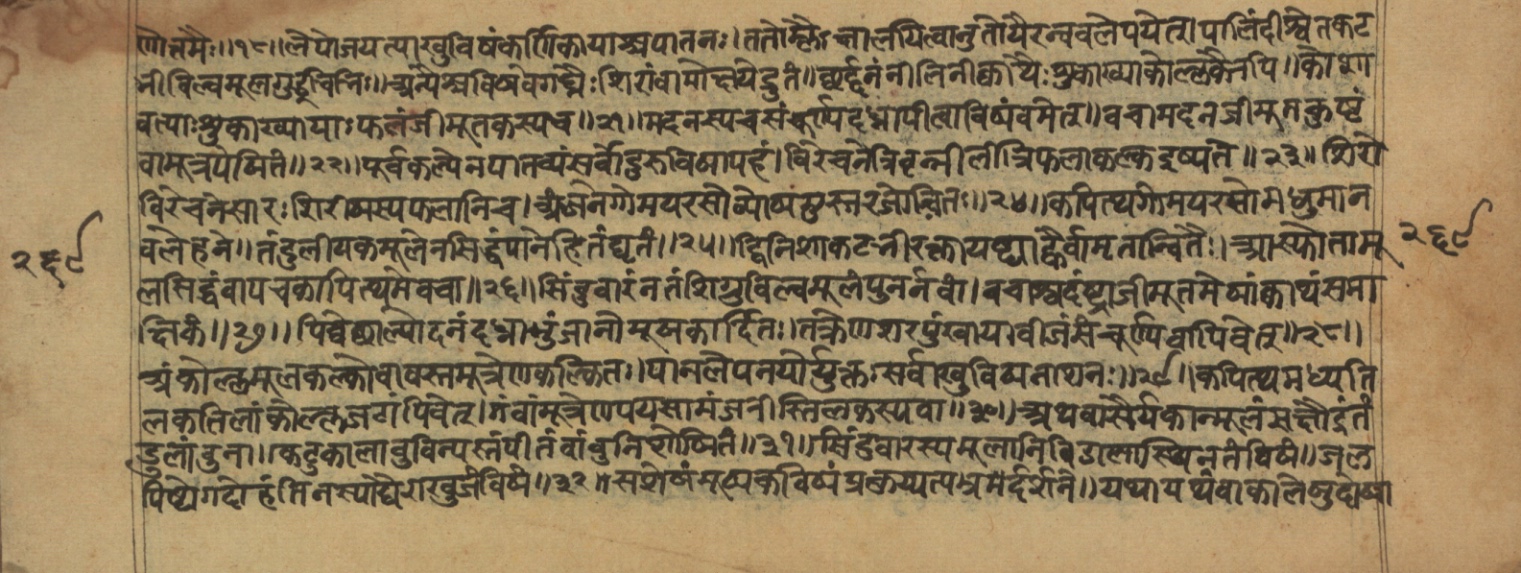 णोत्तमैः॥१९॥लेपोजयत्याखुविषंकर्णिकायाश्चपातनः।ततोम्लैः क्षालयित्वानुतोयैरन्ववलेपयेत्।पालिंदीश्वेतकट
भीविल्वमूलगुडूचिभिः॥अन्यैश्चविषवेगघ्नैः शिरांवामोक्षयेद्द्रुतं॥छर्द्दनंनीलिनीक्वाथैः शुकाख्याकोल्लकैरपि॥कोशा
वत्याःशुकाख्यायाःफलंजीमूतकस्यच॥२१॥मदनस्यचसंचूर्ण्यदध्नापीत्वाविषंवमेत्॥वचामदनजीमूतकुष्टं
वामूत्रपेषितं॥२२॥पूर्वकल्पेनपातव्यंसर्वोन्दुरुविषापहं।विरेचनेत्रिवृन्नीलीत्रिफलाकल्कइष्यते॥२३॥शिरो
विरेचनंसारःशिरीषस्यफलानिच।अंजनेगोमयरसोव्योषसुस्तरजोन्वितः॥२४॥कपित्थगोमयरसोमधुमान
२६९
वलेहने॥तंदुलीयकमूलेनसिद्धंपानेहितंघृतं॥२५॥द्विनिशाकटभीरक्तायष्ट्याह्वैर्वामृतान्वितैः।आस्फोतामू
२६९
लसिद्धंवापचकापित्थमेववा॥२६॥सिंदुवारंनतंशिग्रुविल्वमूलंपुनर्नवां।वचाश्वदंष्ट्राजीमूतमेषांक्वाथंसमा
क्षिकं॥२७॥पिवेच्छाल्योदनंदध्नाभुंजानोमूषकार्दितः।तक्रेणशरपुंखायावीजंसंचूर्ण्यवापिवेत्॥२८॥
अंकोल्लमूलकल्कोवावस्तमूत्रेणकल्कितः॥पानलेपनयोर्युक्तःसर्वाखुविषनाशनः॥२९॥कपित्थमध्यति
लकतिलांकोल्लजटाःपिवेत्।गवांमूत्रेणपयसामंजरींतिलकस्यवा॥३०॥अथवासैर्यकान्मूलंसक्षौद्रंतं
डुलांवुना॥कटुकालावुविन्यस्तंपीतंवांवुनिशोषितं॥३१॥सिंदुवारस्यमूलानिविडालास्थिनतंविषं॥जल
पिष्टोगदोहंतिनस्याद्यैराखुजंविषं॥३२॥सशेषंमूषकविषंप्रकुप्यत्यभ्रमदर्शने॥यथायथंवाकालेषुदोषा